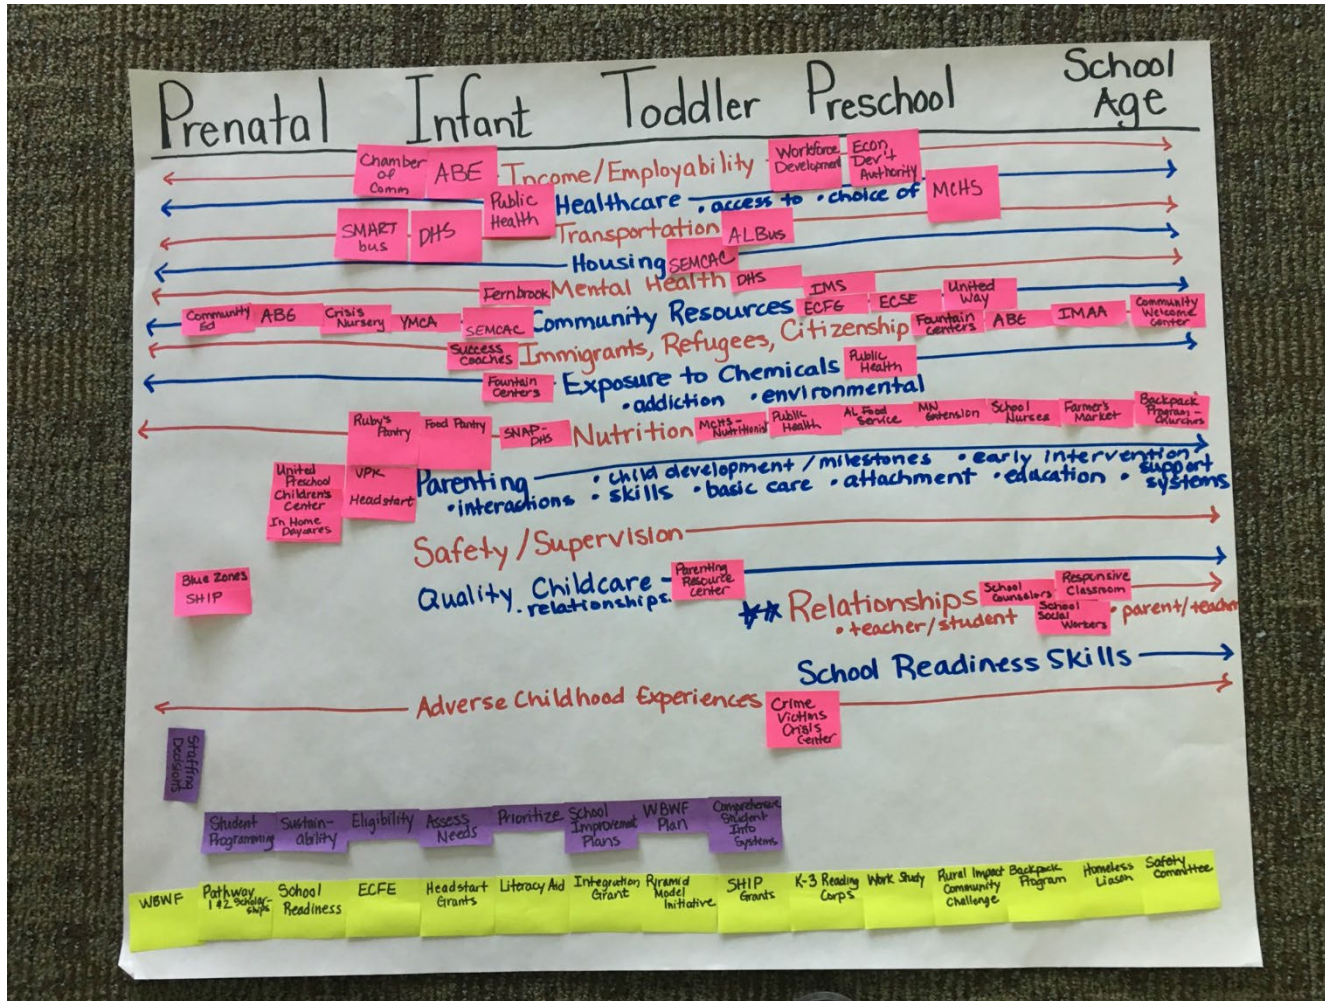 Prenatal Infant Toddler Preschool School Age
Chamber of Comm
ABE
Income/Employability
Workforce Development
Econ Dev't Authority
Public Health
Healthcare • access to • choice of
MCHS
SMART bus
DHS
Transportation
ALBus
Housing
SEMCAC
Fernbrook
Mental Health
DHS
IMS
Community Ed
ABE
Crisis Nursery
YMCA
SEMCAC
Community Resources
ECFE
ECSE
United Way
Success Coaches
Immigrants, Refugees, Citizenship
Fountain Centers
ABE
IMAA
Community Welcome Center
Fountain Centers
Exposure to Chemicals
• addiction • environmental
Public Health
Ruby's Pantry
Food Pantry
SNAP-DHS
Nutrition
MCHS-Nutritionist
Public Health
AL Food Service
MN Extension
School Nurses
Farmer's Market
Backpack Program-Churches
United Preschool
Children's Center
In Home Daycares
VPK
Headstart
Parenting • child development/milestones • early intervention
• interactions • skills • basic care • attachment • education • support systems
Safety/Supervision
Blue Zones
SHIP
Quality Childcare
• relationships
Parenting Resource Center
** Relationships
• teacher/student
School Counselors
Responsive Classroom
School Social Workers
• parent/teacher
School Readiness Skills
Adverse Childhood Experiences
Crime Victims Crisis Center
Staffing Decisions
Student Programming
Sustain-ability
Eligibility
Assess Needs
Prioritize
School Improvement Plans
WBWF Plan
Comprehensive Student Info Systems
WBWF
Pathway 1 & 2 Scholar-ships
School Readiness
ECFE
Headstart Grants
Literacy Aid
Integration Grant
Pyramid Model Initiative
SHIP Grants
K-3 Reading Corps
Work Study
Rural Impact Community Challenge
Backpack Program
Homeless Liason
Safety Committee